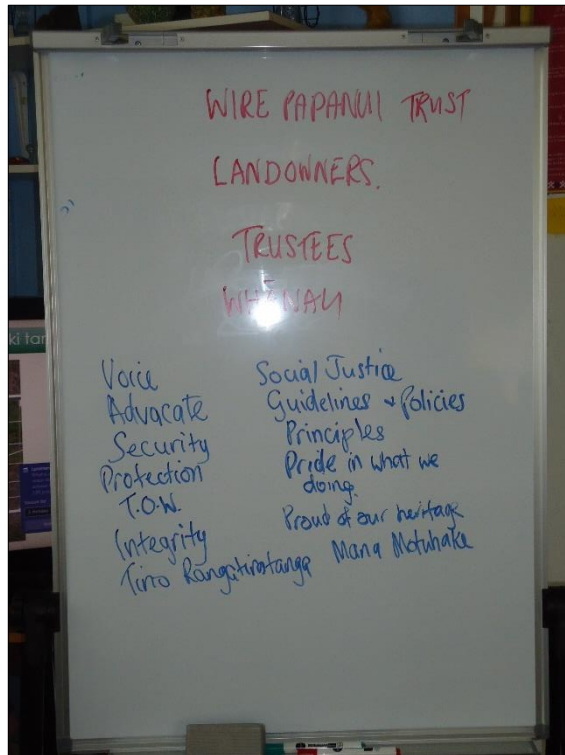 WIRE PAPANUI TRUST
LANDOWNERS.
TRUSTEES
WHĀNAU
Voice
Advocate
Security
Protection
T.O.W.
Integrity
Tino Rangatiratanga
Social Justice
Guidelines + Policies
Principles
Pride in what we
doing.
Proud of our heritage
Mana Motuhake
ki tar